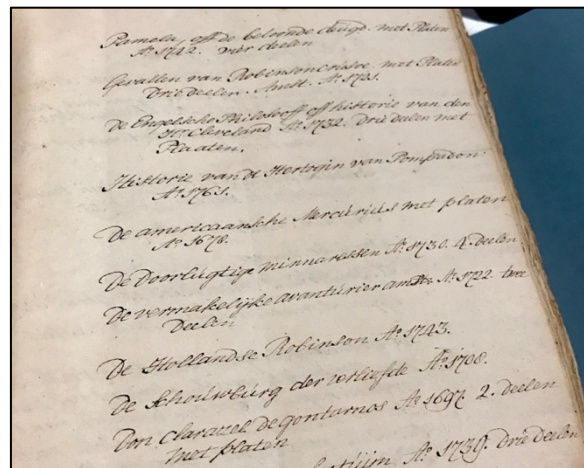 Pamela, off de beloonde deugd. met Platen
Aº. 1742. vier deelen
Gevallen van Robinson crusoe. met Platen
Drie deelen. Amst. Aº. 1721.
De Engelsche Philosooff off historie van den
Hr. Cleveland Aº. 1732. Drie delen met
Plaaten.
Historie van de Hertogin van Pompadon:
Aº. 1761.
De americaansche Mercurius met platen
Aº. 1678.
De Doorlugtige minnaressen Aº. 1730. 4 deelen
De vermakelijke avanturier Aº. 1722. twe
Deelen
De Hollandse Robinson Aº. 1743.
De Schouwburg der verliefde Aº. 1708.
Don Clarazel de gonturnos Aº. 1697. 2. deelen
met platen
Aº. 1739. Drie deelen